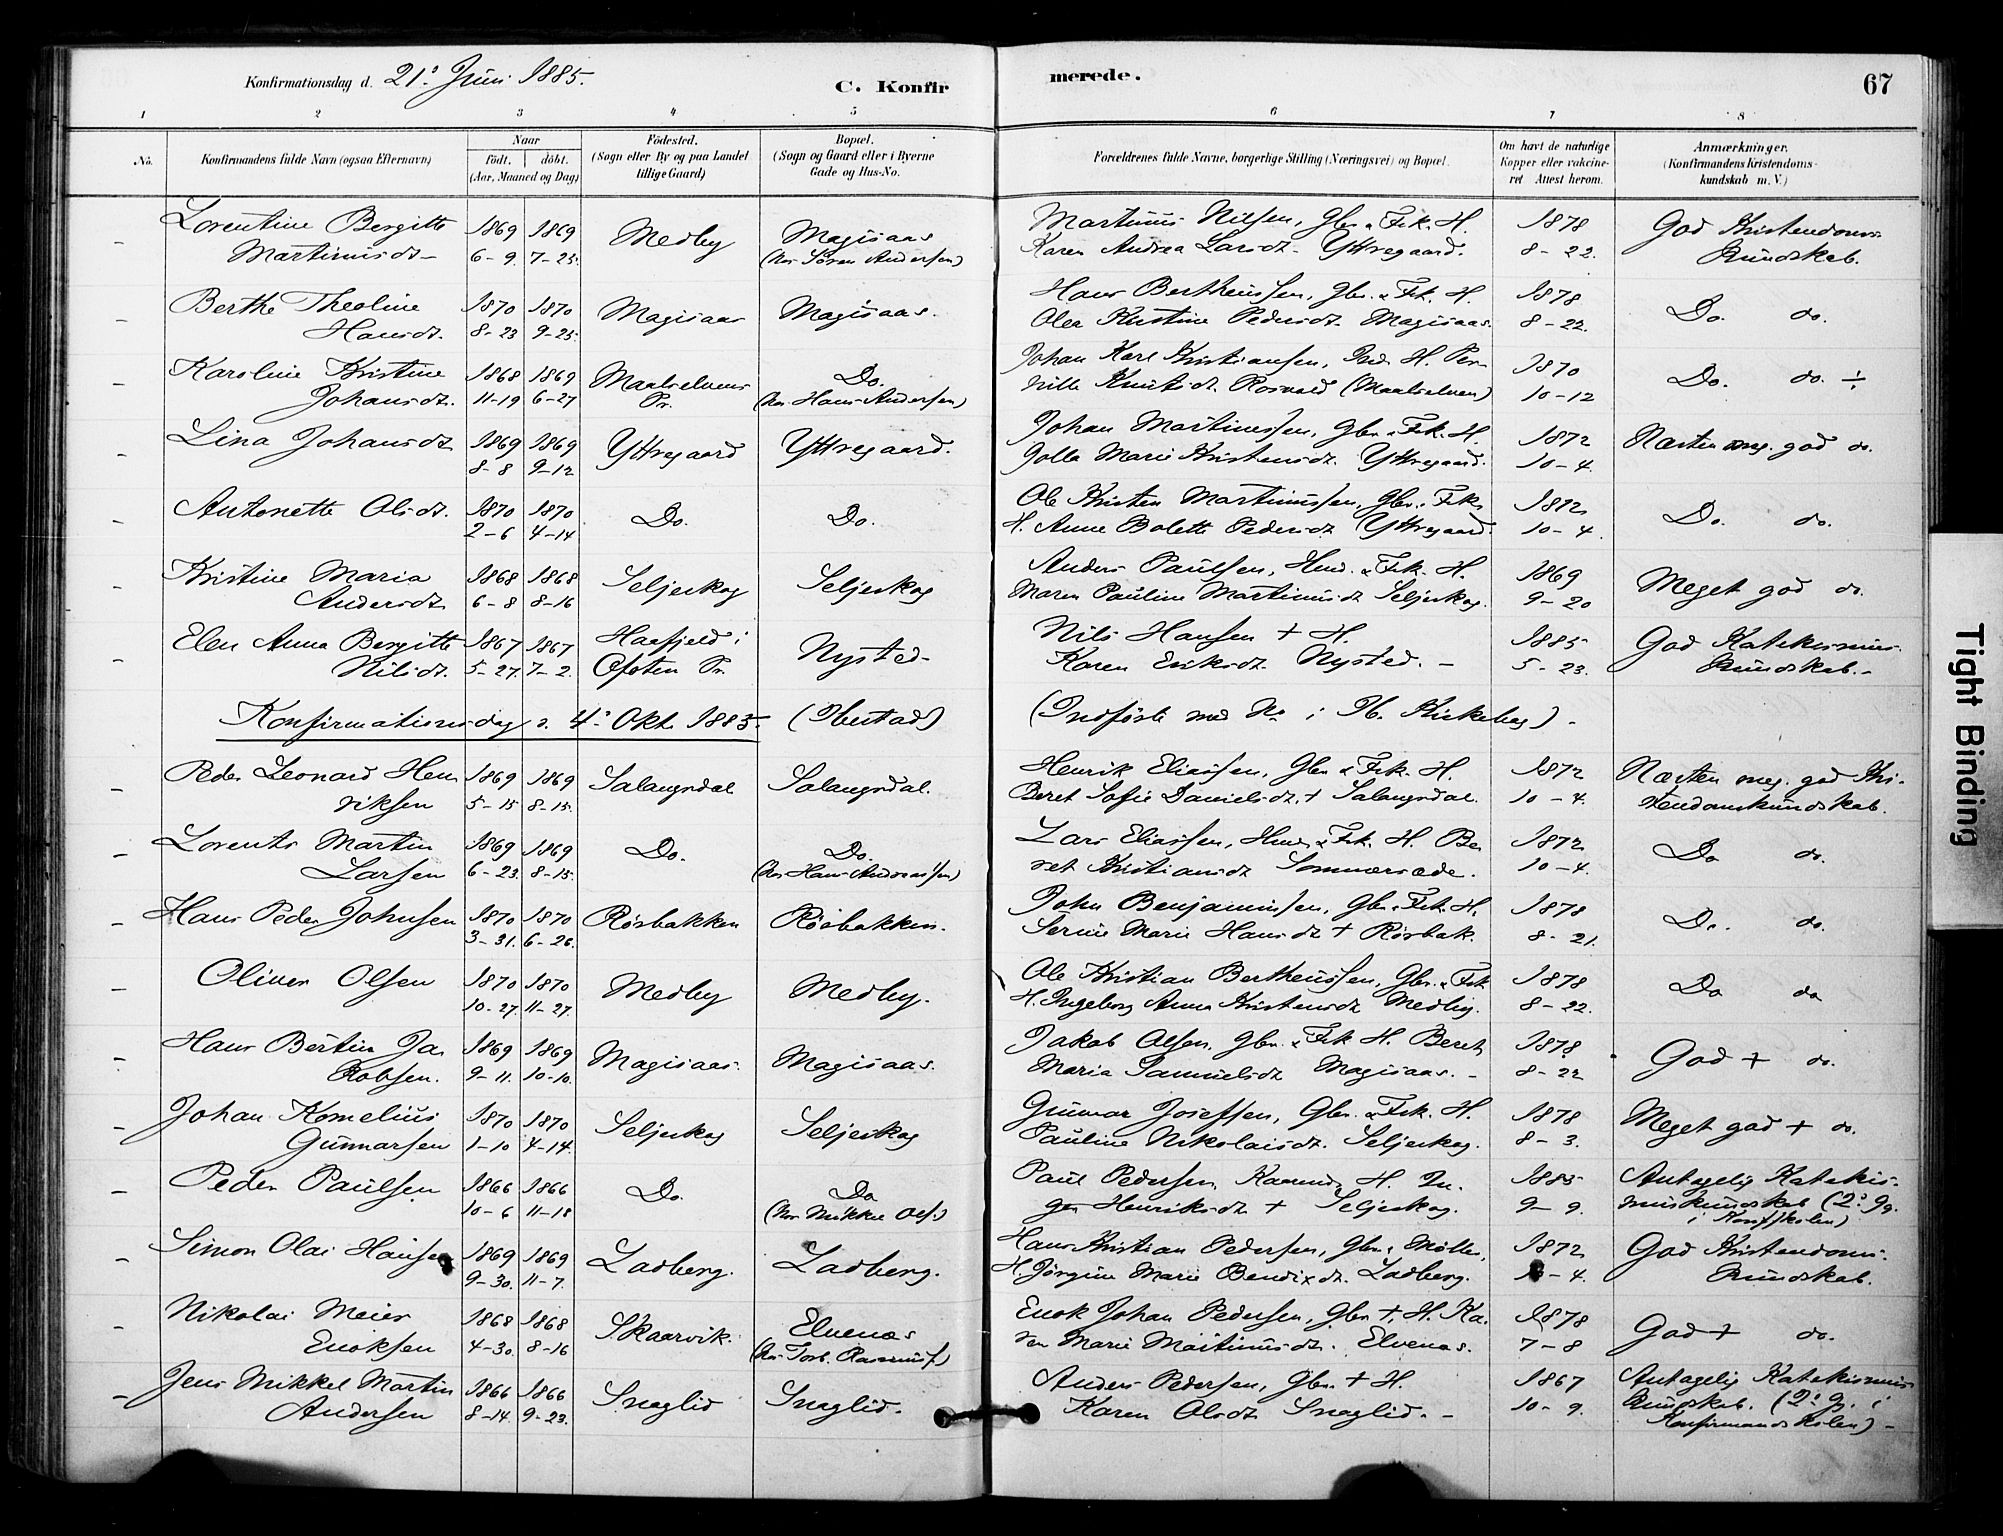 Konfirmationsdag d. 21. Juni 1885.
C. Konfirmerede.
67
1 2 3 4 5 6 7 8
No.
Konfirmandens fulde Navn (ogsaa Efternavn)
Naar
födt. döbt.
(Aar, Maaned og Dag)
Födested.
(Sogn eller By og paa Landet
tillige Gaard)
Bopæl.
(Sogn og Gaard eller i Byerne
Gade og Hus-No.
Forældrenes fulde Navne, borgerlige Stilling (Næringsvei) og Bopæl.
Om havt de naturlige
Kopper eller vakcine-
ret Attest herom.
Anmærkninger.
(Konfirmandens Kristendoms-
kundskab m. V.)
Lorentine Bergitte 1869 1869 Medby Magisaas Martinus Nilsen, Gbr. & Fsk. H. 1878 God Kristendoms-
Martinusdt. 6-9. 7-25. (hos Sören Andersen) Karen Andrea Larsdt. Yttregaard. 8-22. kundskab.
Berthe Theoline 1870 1870 Magisaas Magisaas. Hans Bertheussen, Gbr. & Fsk. H. 1878 Do. do.
Hansdt. 8-23 9-25. Olea Kristine Pedersdt. Magisaas. 8-22.
Karoline Kristine 1868 1869 Maalselvens Do. Johan Karl Kristiansen, Ind. H. Per- 1870 Do. do. ÷
Johansdt. 11-19 6-27 Pr. (hos Hans Andersen) nille Knutsdt. Rosvold (Maalselven) 10-12
Lina Johansdt 1869 1869 Yttregaard Yttregaard. Johan Martinussen, Gbr. & Fsk. H. 1872 Næsten meg. god do.
8-8 9-12 Marie Kristensdt. Yttregaard. 10-4.
Antonette Olsdt. 1870 1870 Do. Do. Ole Kristen Martinussen, Gbr. Fsk. 1872 Do. do.
2-6 4-14 H. Anne Bolette Pedersdt. Yttregaard. 10-4.
Kristine Maria 1868 1868 Seljeskog Seljeskog Anders Paulsen, Hmd. & Fsk. H. 1869 Meget god do.
Andersdt. 6-8 8-16 Maren Pauline Martinusdt Seljeskog. 9-20
Elen Anna Bergitte 1867 1867 Haafjeld i Nysted Nils Hansen + H. 1885 God Katekismus-
Nilsdt. 5-27. 7-2. Ofoten Pr. Karen Eriksdt. Nysted. - 5-23. kundskab. -
Konfirmationsdag d. 4. Okt. 1885. (Ibestad) (Indförte med No i Ib. Kirkebog) -
Peder Leonard Hen- 1869 1869 Salangsdal Salangsdal. Henrik Eliassen, Gbr. & Fsk. H. 1872 Næsten meg. god Kri-
riksen 5-15 8-15. Beret Sofie Danielsdt. + Salangsdal. 10-4. stendomskundskab.
Lorents Martin 1869 1869 Do. Do. Lars Eliassen, Hmd. & Fsk. H. Be- 1872 Do do.
Larsen 6-23. 8-15. (hos Hans Andreassen) ret Kristiansdt Sommersæde. 10-4.
Hans Peder Johnsen 1870 1870 Rörbakken Rörbakken. John Benjaminsen, Gbr. Fsk. H. 1878 Do. do.
3-31. 6-26. Serine Marie Hansdt + Rörbak. 8-21.
Oliver Olsen 1870 1870 Medby Medby. Ole Kristian Bertheussen, Gbr. & Fsk 1878 Do do
10-27. 11-27. H. Ingeborg Anna Kristensdt Medby. 8-22.
Hans Bertin Ja- 1869 1869 Magisaas. Magisaas. Jakob Olsen, Gbr. & Fsk H. Beret 1878 God + do.
kobsen. 9-11. 10-10. Maria Samuelsdt Magisaas. - 8-22
Johan Kornelius 1870 1870 Seljeskog Seljeskog Gunnar Josefsen, Gbr. & Fsk. H. 1878 Meget god + do.
Gunnarsen 1-10 4-14. Pauline Nikolaisdt. Seljeskog. 8-3.
Peder Paulsen 1866 1866 Do. Do Paul Pedersen, H. In- 1885 Antagelig Katekis-
10-6 11-18 (hos Mikkel Ols.) ger Henriksdt + Seljeskog. 9-9. muskundskab (2. Gg.
i Konf.skolen)
Simon Olai Hansen 1869 1869 Ladberg. Ladberg. Hans Kristian Pedersen, Gbr. & Möller, 1872 God Kristendoms-
9-30. 11-7. H. Jörgine Marie Bendixdt. Ladberg. 10-4. kundskab.
Nikolai Meier 1868 1868 Skaarvik. Elvenæs Enok Johan Pedersen, Gbr +, H. Ka- 1878 God + do.
Enoksen 4-30. 8-16 (hos Torb. Rasmuss.) ren Marie Martinusdt. Elvenæs. 7-8
Jens Mikkel Martin 1866 1866 Snaglid Snaglid. Anders Pedersen, Gbr. + H. 1867 Antagelig Katekismus-
Andersen 8-14. 9-23. Karen Olsdt Snaglid. - 10-9. kundskab. (2. Gg. i
Konfirmandskolen) -
Tight Binding